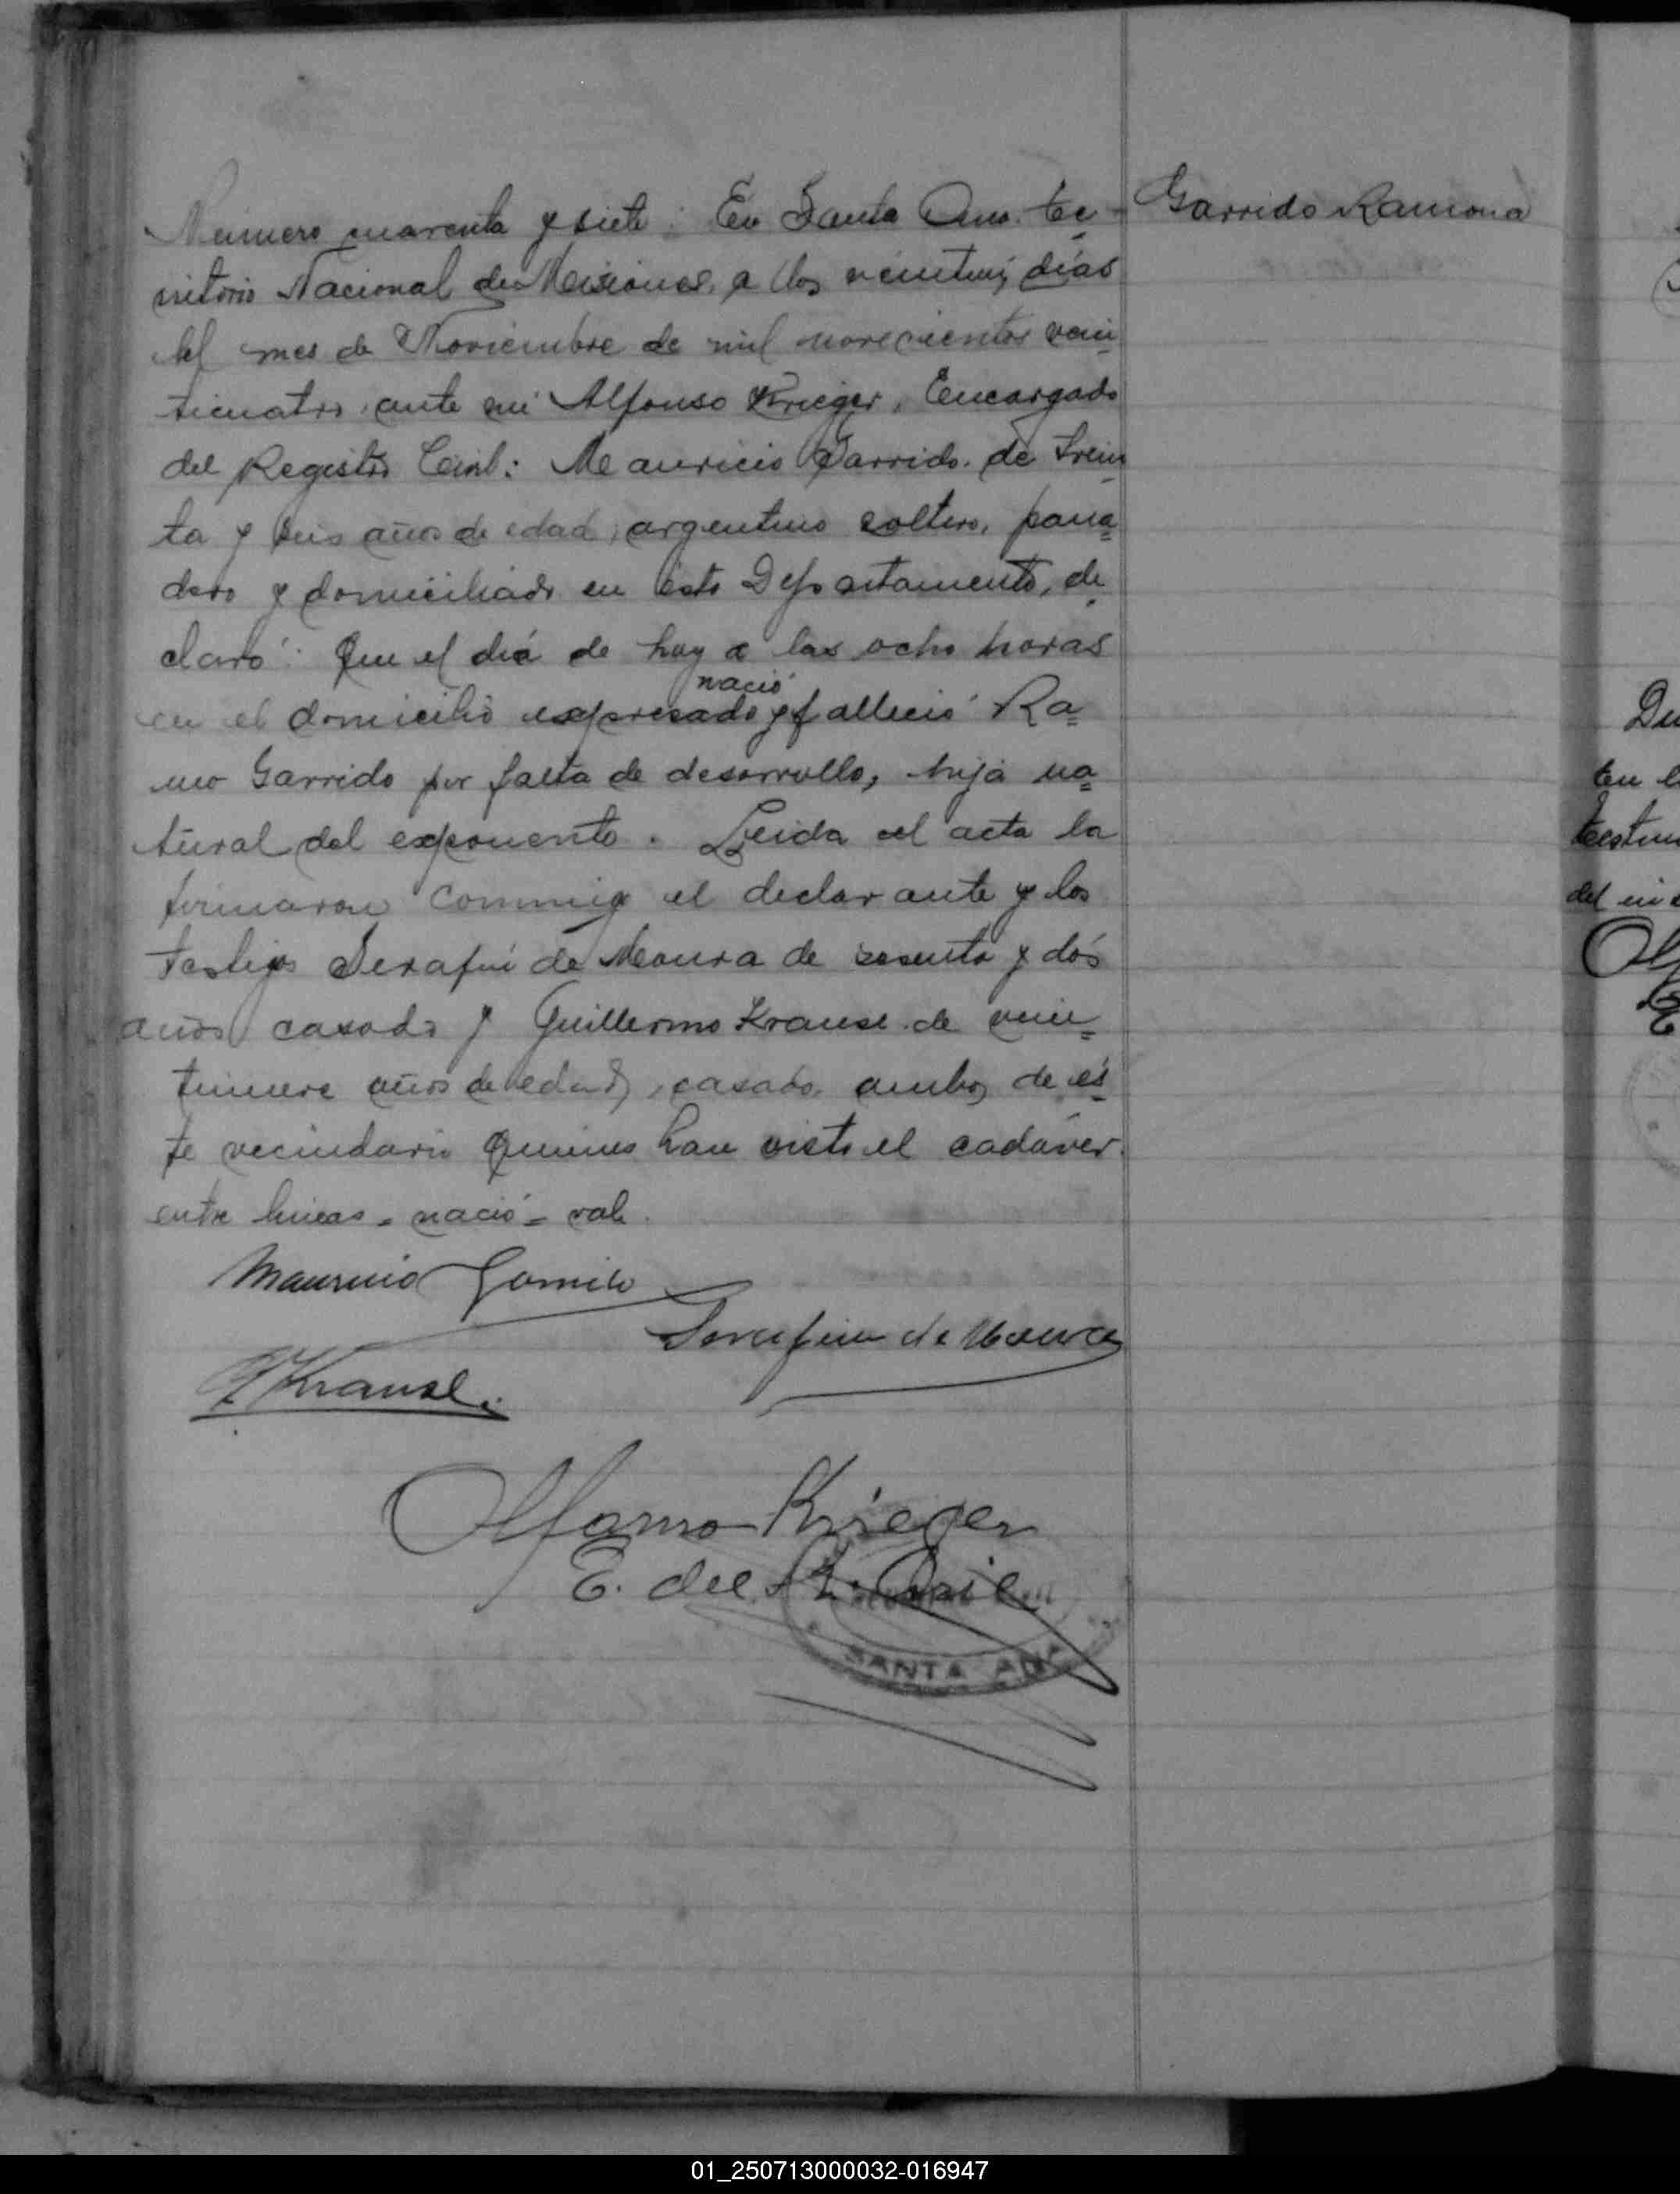 Número cuarenta y siete: En Santa Ana. te-
rritorio Nacional de Misiones, a los veintiun días
del mes de Noviembre de mil novecientos vein
ticuatro, ante mi Alfonso Krieger, Encargado
del Registro Civil: Mauricio Garrido. de trein
ta y seis años de edad, argentino soltero, pana=
dero y domiciliado en este Departamento, de
claró: Que el día de hoy a las ocho horas
nació
en el domicilio expresado y falleció Ra=
mo Garrido por falta de desarrollo, hija na=
tural del exponente. Leida el acta la
firmaron conmigo el declarante y los
testigos Serafin de Moura de sesenta y dós
años casado y Guillermo Krause de vein=
tinueve años de edad, casado, ambos de és
te vecindario quienes han visto el cadáver.
entre lineas = nació = vale.
Mauricio Garrido
Serafim de Moura
G Krause.
Alfonso Krieger
E. del R. Civil
SANTA ANA
Garrido Ramona
Du
ten l
testim
del
01_250713000032-016947